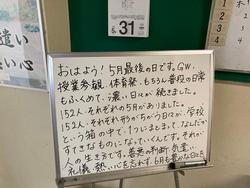 遣い
い心
31
おはよう！5月最後の日です。GW、
授業参観、体育祭、もちろん普段の日常
もふくめて、濃い日々が続きました。
152人、それぞれの5月がありました。
152人、それぞれ形がちがう日々が、学校
という箱の中で、1つにまとまって、なんだか
すてきなものになっていくんです。それが
人の生き方です。善悪の判断、気遣い
礼儀、熱い心を忘れず、6月も豊かな日々を